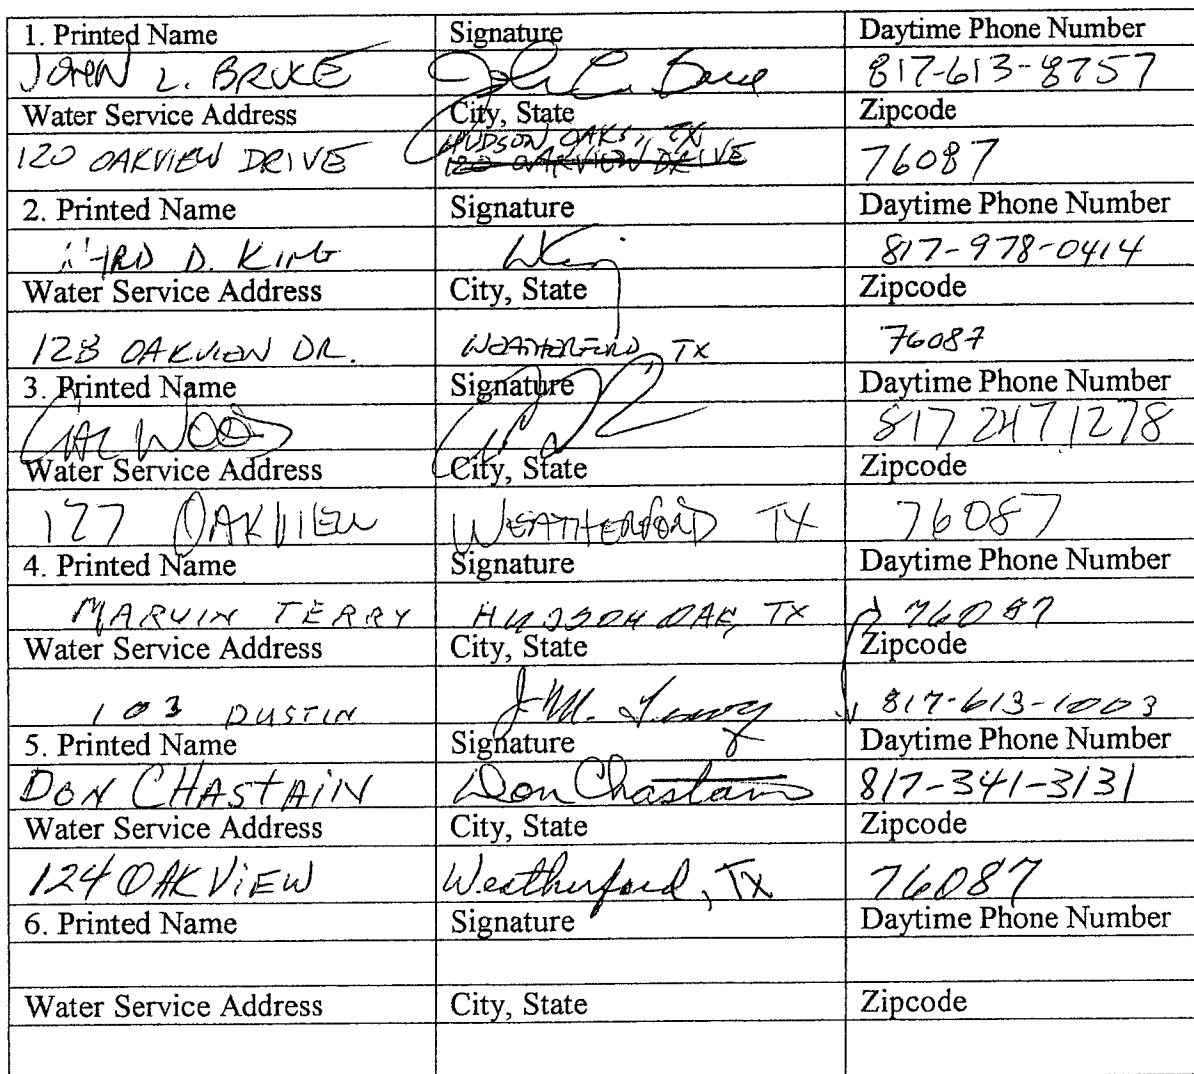 1. Printed Name Signature Daytime Phone Number
JOHN L. BRUCE John L. Bruce 817-613-8757
Water Service Address City, State Zipcode
HUDSON OAKS, TX
120 OAKVIEW DRIVE 120 OAKVIEW DRIVE 76087
2. Printed Name Signature Daytime Phone Number
D. KING 817-978-0414
Water Service Address City, State Zipcode
128 OAKVIEW DR. WEATHERFORD, TX 76087
3. Printed Name Signature Daytime Phone Number
WOOD 817 247 1278
Water Service Address City, State Zipcode
127 OAKVIEW WEATHERFORD TX 76087
4. Printed Name Signature Daytime Phone Number
MARVIN TERRY HUDSON OAK, TX 76087
Water Service Address City, State Zipcode
103 DUSTIN J. M. Terry 817-613-1003
5. Printed Name Signature Daytime Phone Number
DON CHASTAIN Don Chastain 817-341-3131
Water Service Address City, State Zipcode
124 OAKVIEW Weatherford, TX 76087
6. Printed Name Signature Daytime Phone Number
Water Service Address City, State Zipcode